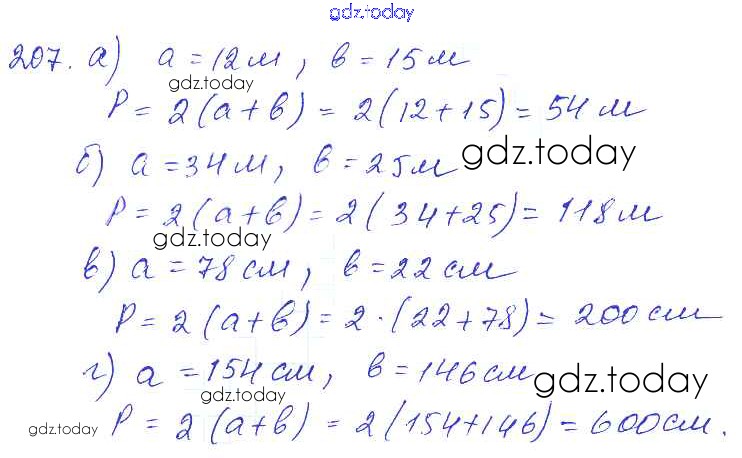 gdz.today
207. а) a = 12 м, b = 15 м
gdz.today
P = 2(a+b) = 2(12+15) = 54 м
б) a = 34 м, b = 25 м gdz.today
P = 2(a+b) = 2(34+25) = 118 м
gdz.today
в) a = 78 см, b = 22 см
P = 2(a+b) = 2·(22+78) = 200 см
г) a = 154 см, b = 146 см gdz.today
gdz.today
gdz.today P = 2(a+b) = 2(154+146) = 600 см.